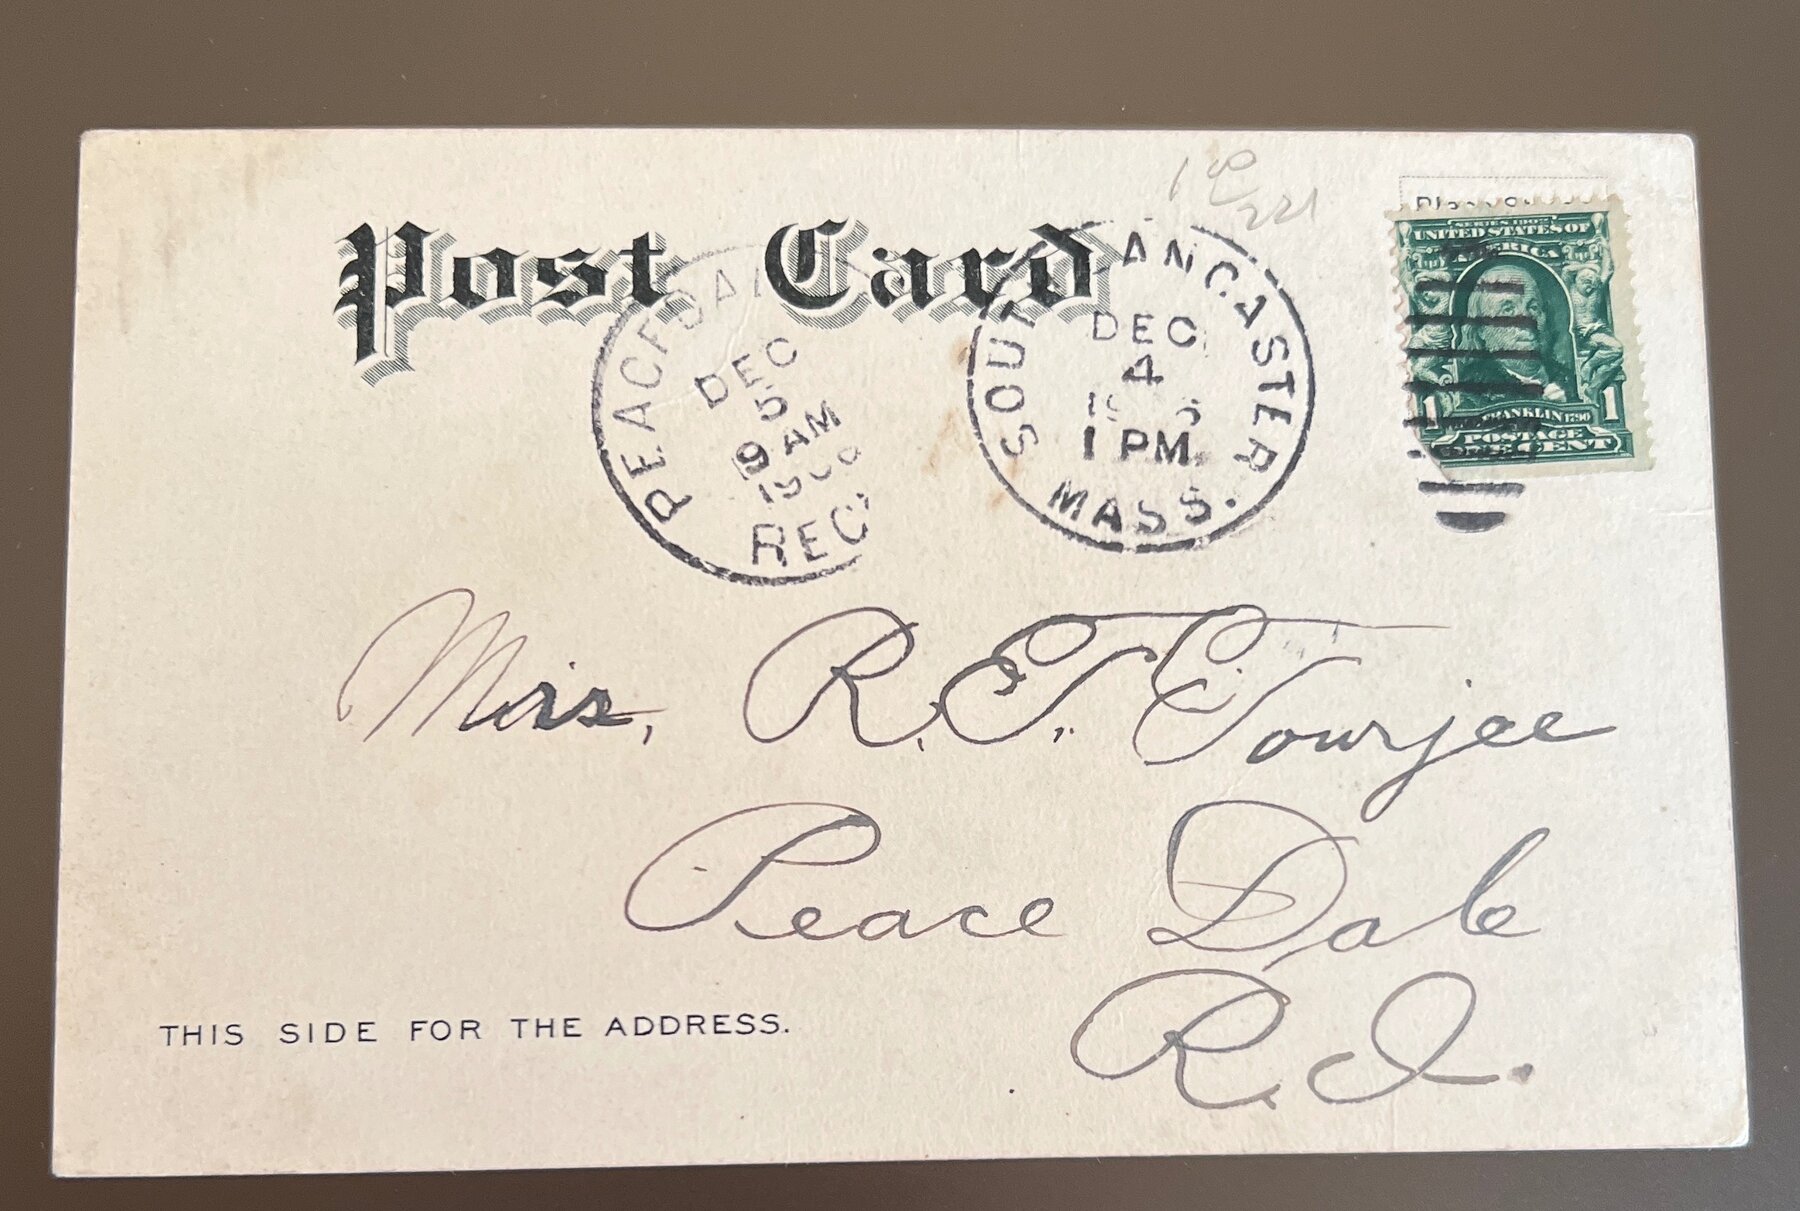 Post Card
1 00
221
SOUTH LANCASTER
DEC
4
1906
1 PM
MASS.
PEACEDALE
DEC
5
9 AM
1906
REC'D
SERIES 1902
UNITED STATES OF
AMERICA
1 FRANKLIN 1790 1
POSTAGE
ONE CENT
Miss, R. E. T. Tourjee
Peace Dale
R. I.
THIS SIDE FOR THE ADDRESS.